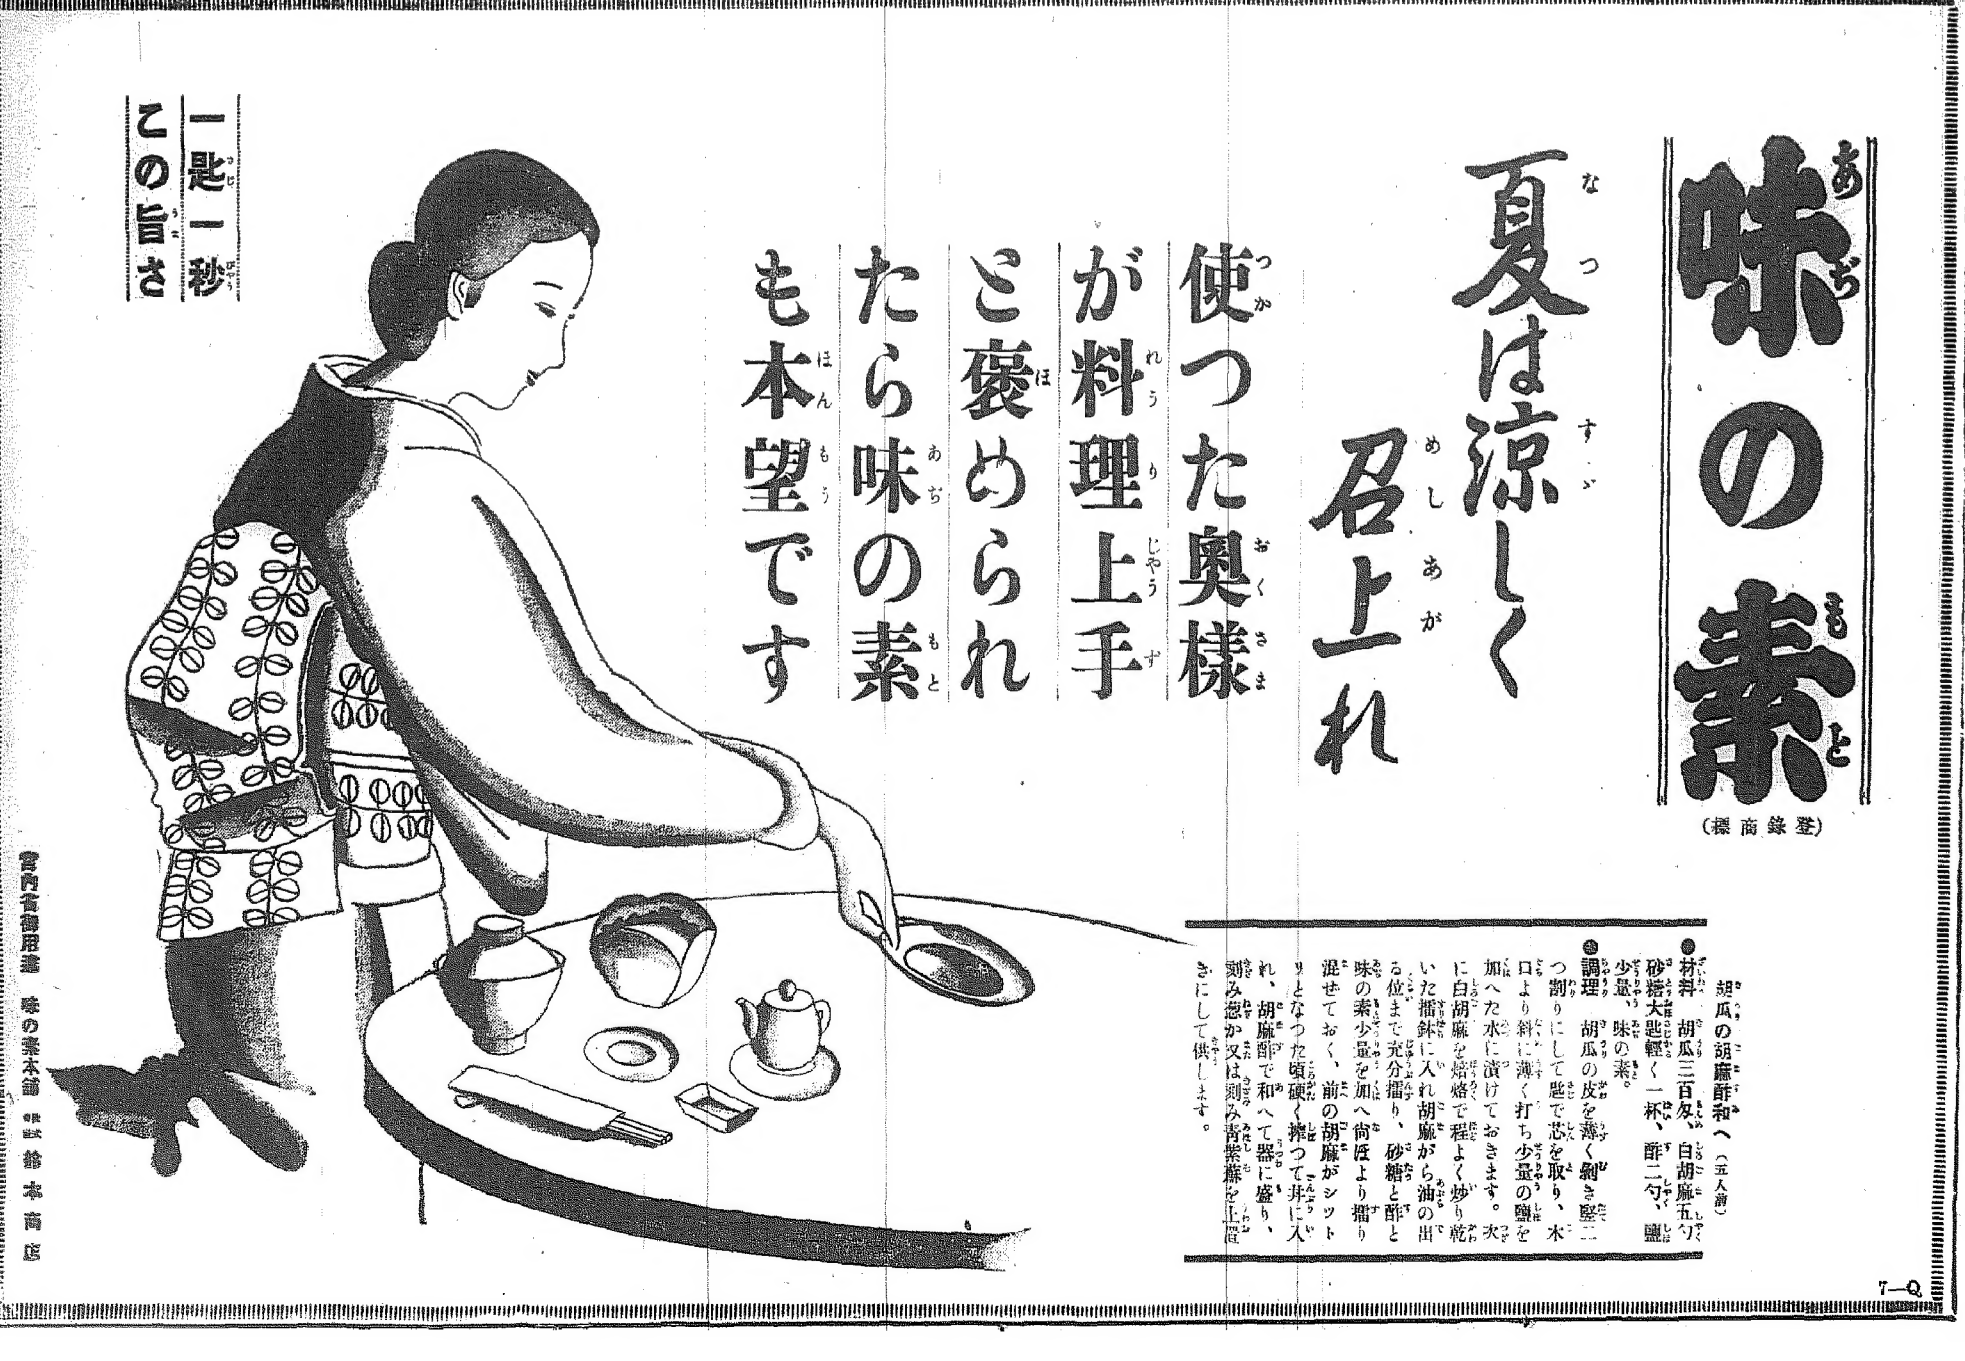 味の素
(登錄商標)
夏は涼しく
召上れ
使つた奥樣
が料理上手
と褒められ
たら味の素
も本望です
一匙一秒
この旨さ
胡瓜の胡麻酢和へ（五人前）
●材料　胡瓜三百匁、白胡麻五勺
砂糖大匙輕く一杯、酢二勺、鹽
少量、味の素。
●調理　胡瓜の皮を薄く剝き竪二
つ割りにして匙で芯を取り、木
口より斜に薄く打ち少量の鹽を
加へた水に漬けておきます。次
に白胡麻を焙烙で程よく炒り乾
いた擂鉢に入れ胡麻がら油の出
る位まで充分擂り、砂糖と酢と
味の素少量を加へ尙ほより擂り
混せておく、前の胡麻がシツト
りとなつた頃硬く搾つて丼に入
れ、胡麻酢で和へて器に盛り、
刻み葱か又は刻み靑紫蘇を上置
きにして供します。
宮內省御用達　味の素本舖　鈴木商店
7—Q